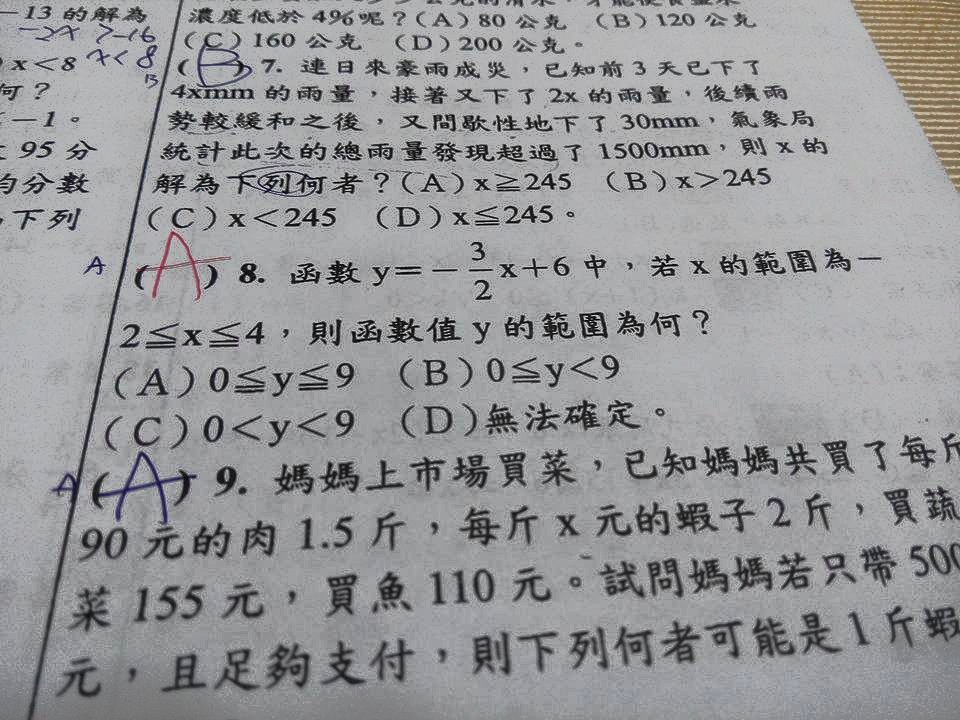 -13 的解為
-2x > -16
x<8 x<8
何？
-1。
95 分
均分數
下列
濃度低於 4%呢？(A) 80 公克 (B) 120 公克
(C) 160 公克 (D) 200 公克。
(B) 7. 連日來豪雨成災，已知前 3 天已下了
4xmm 的雨量，接著又下了 2x 的雨量，後續雨
勢較緩和之後，又間歇性地下了 30mm，氣象局
統計此次的總雨量發現超過了 1500mm，則 x 的
解為下列何者？(A) x≧245 (B) x>245
(C) x<245 (D) x≦245。
A (A) 8. 函數 y=-3/2x+6 中，若 x 的範圍為-
2≦x≦4，則函數值 y 的範圍為何？
(A) 0≦y≦9 (B) 0≦y<9
(C) 0<y<9 (D) 無法確定。
A (A) 9. 媽媽上市場買菜，已知媽媽共買了每斤
90 元的肉 1.5 斤，每斤 x 元的蝦子 2 斤，買蔬
菜 155 元，買魚 110 元。試問媽媽若只帶 500
元，且足夠支付，則下列何者可能是 1 斤蝦